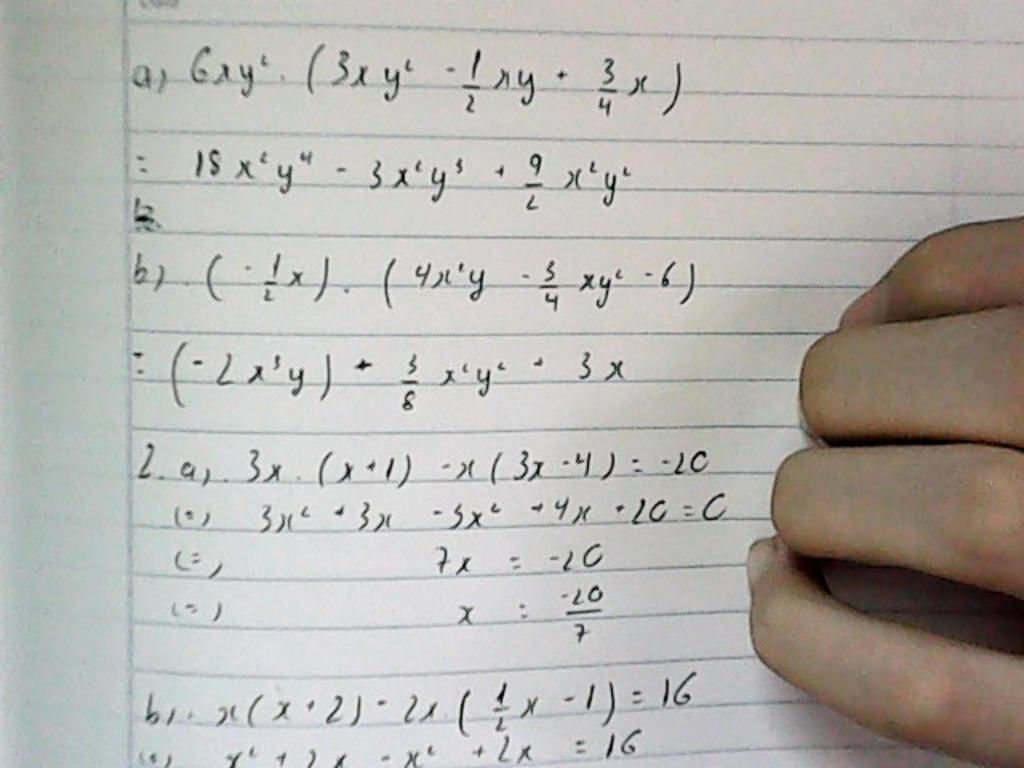 a) 6xy² . (3xy² - 1/2 xy + 3/4 x)
= 18x²y⁴ - 3x²y³ + 9/2 x²y²
b) . (-1/2 x) . (4x²y - 3/4 xy² - 6)
= (-2x³y) + 3/8 x²y² + 3x
2. a) . 3x . (x+1) - x(3x-4) = -20
(=) 3x² + 3x - 3x² + 4x + 20 = 0
(=) 7x = -20
(=) x = -20/7
b) . x(x+2) - 2x(1/2 x - 1) = 16
(=) x² + 2x - x² + 2x = 16